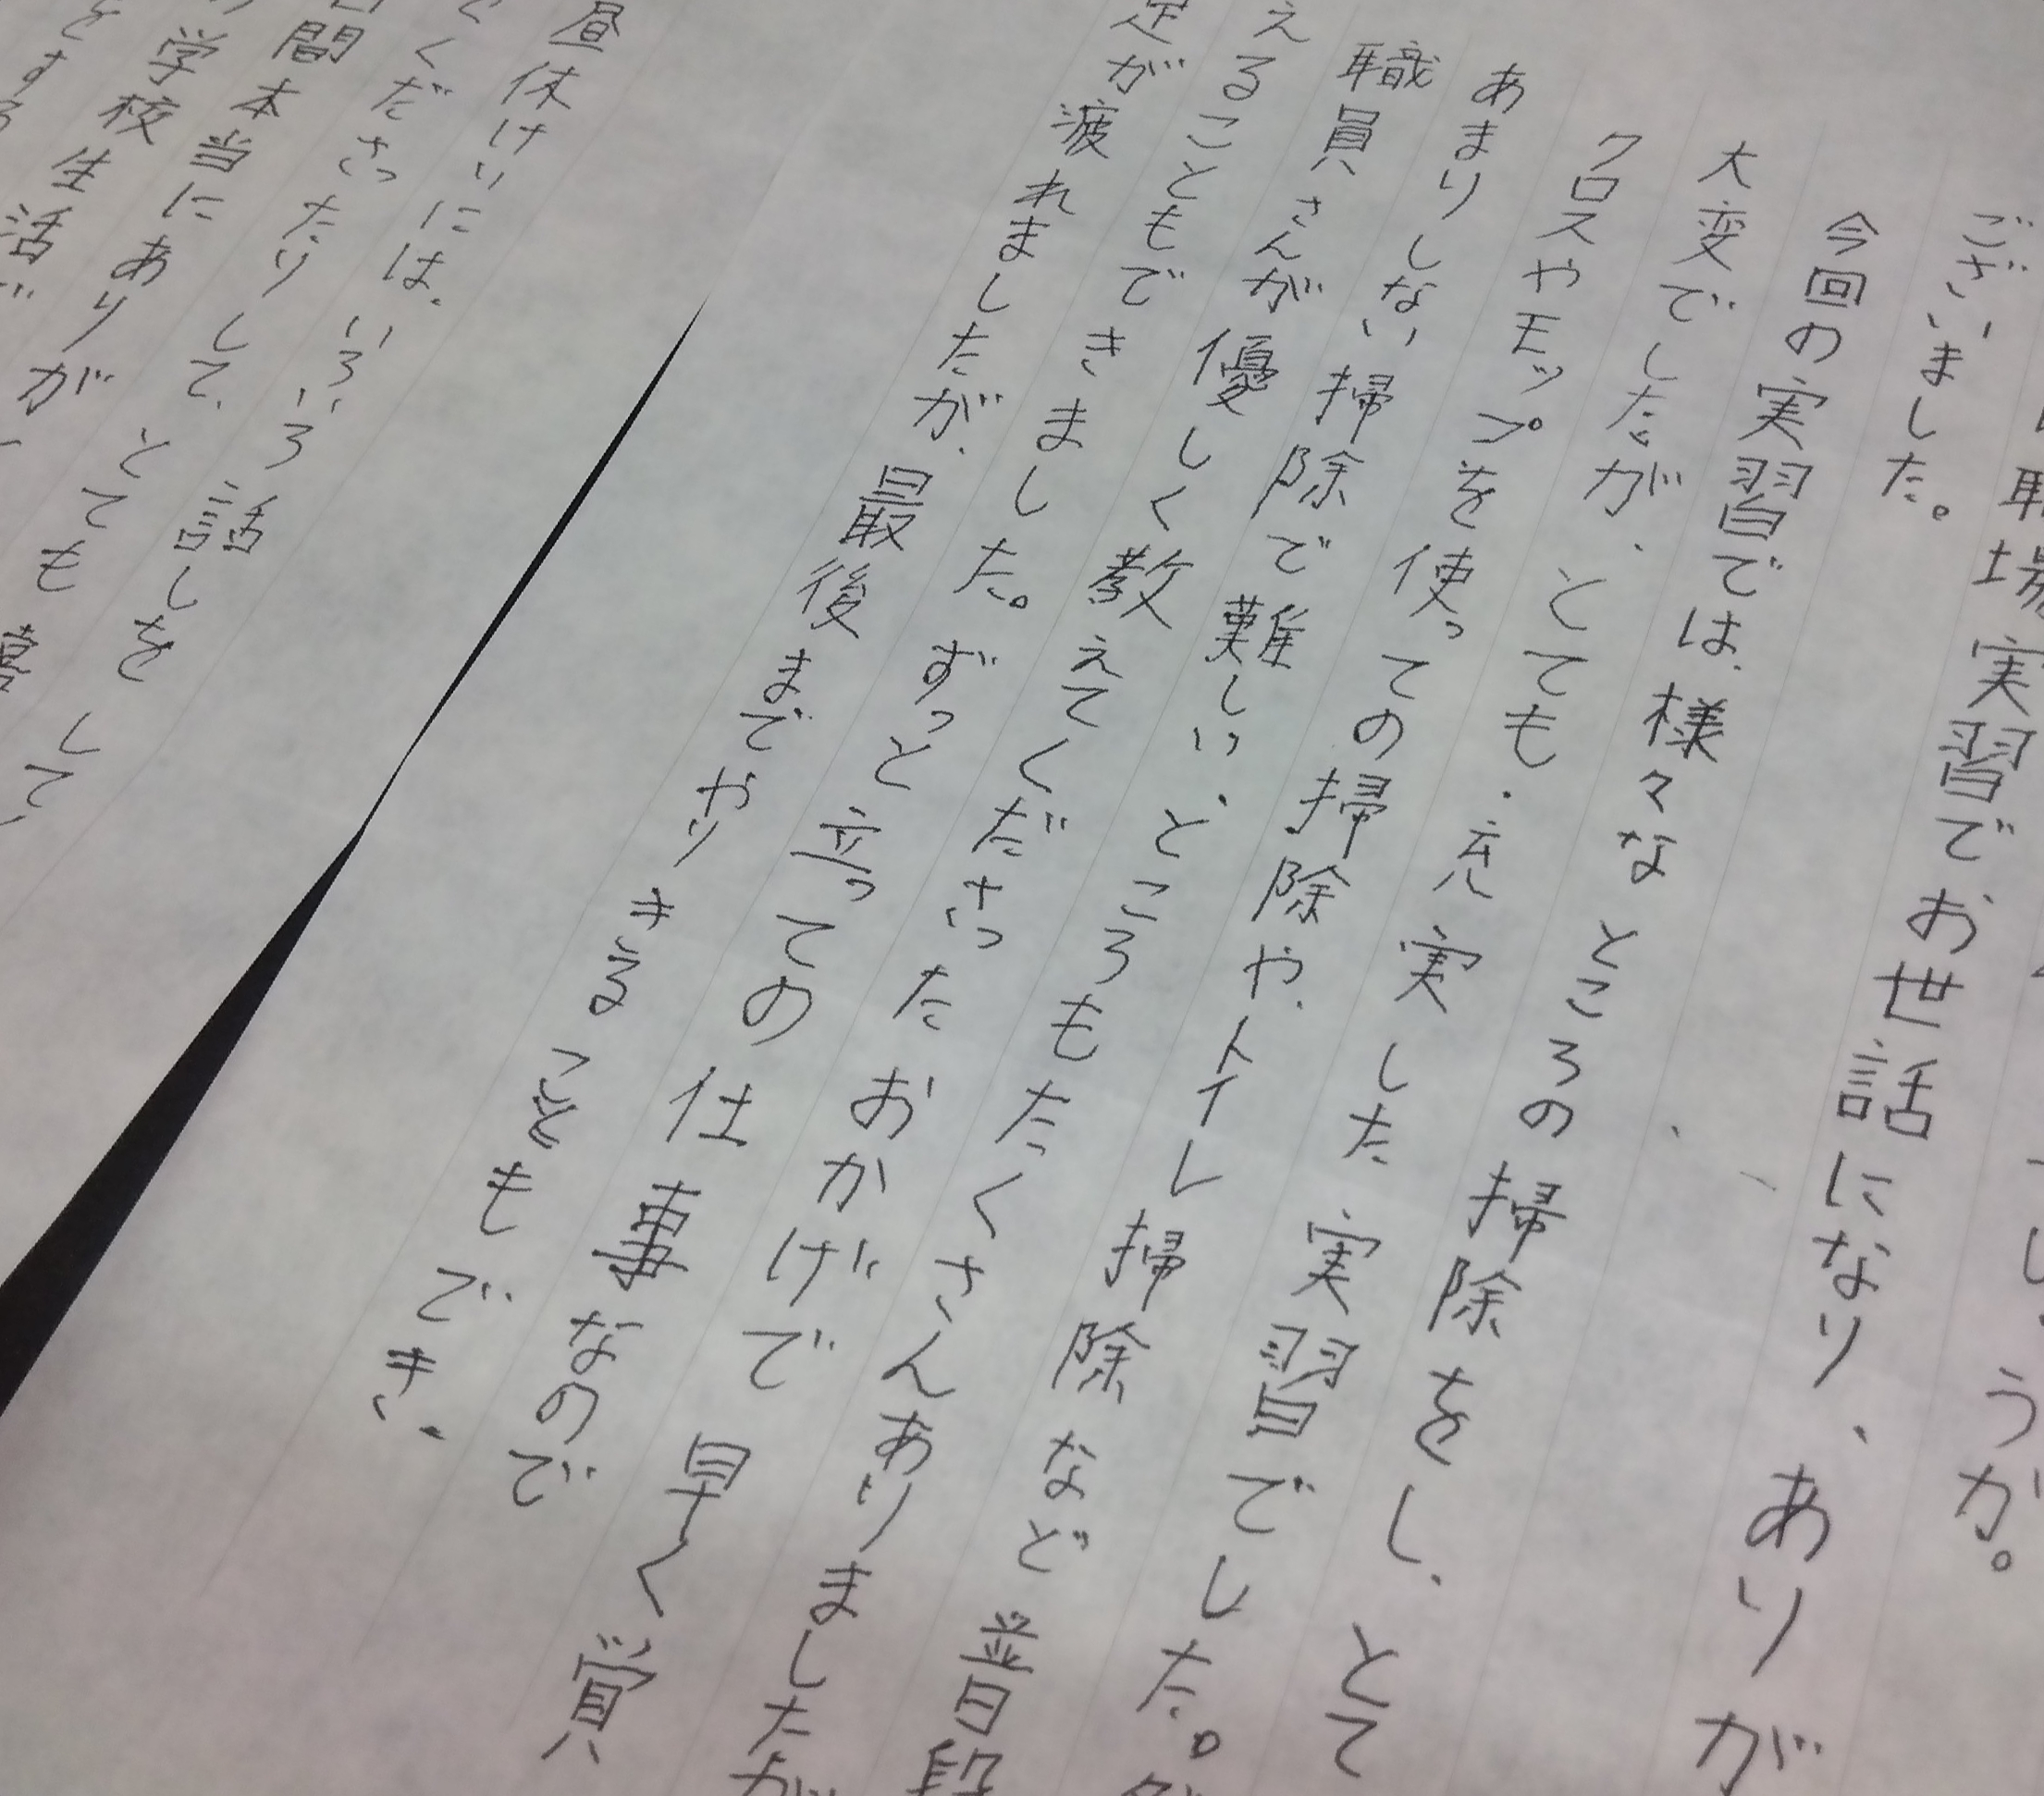 うか。
職場実習でお世話になり、ありが
ございました。
今回の実習では、様々なところの掃除をし、とて
大変でしたが、とても・充実した実習でした。
クロスやモップを使っての掃除や、トイレ掃除など普段
あまりしない掃除で難しい、ところもたくさんありましたが
職員さんが優しく教えてくださったおかげで早く覚
えることもできました。ずっと立っての仕事なので
足が疲れましたが、最後までやりきることもでき、
昼休けいには、いろいろ話しをして
くださったりして、とても
間本当にありが
学校生活
とする